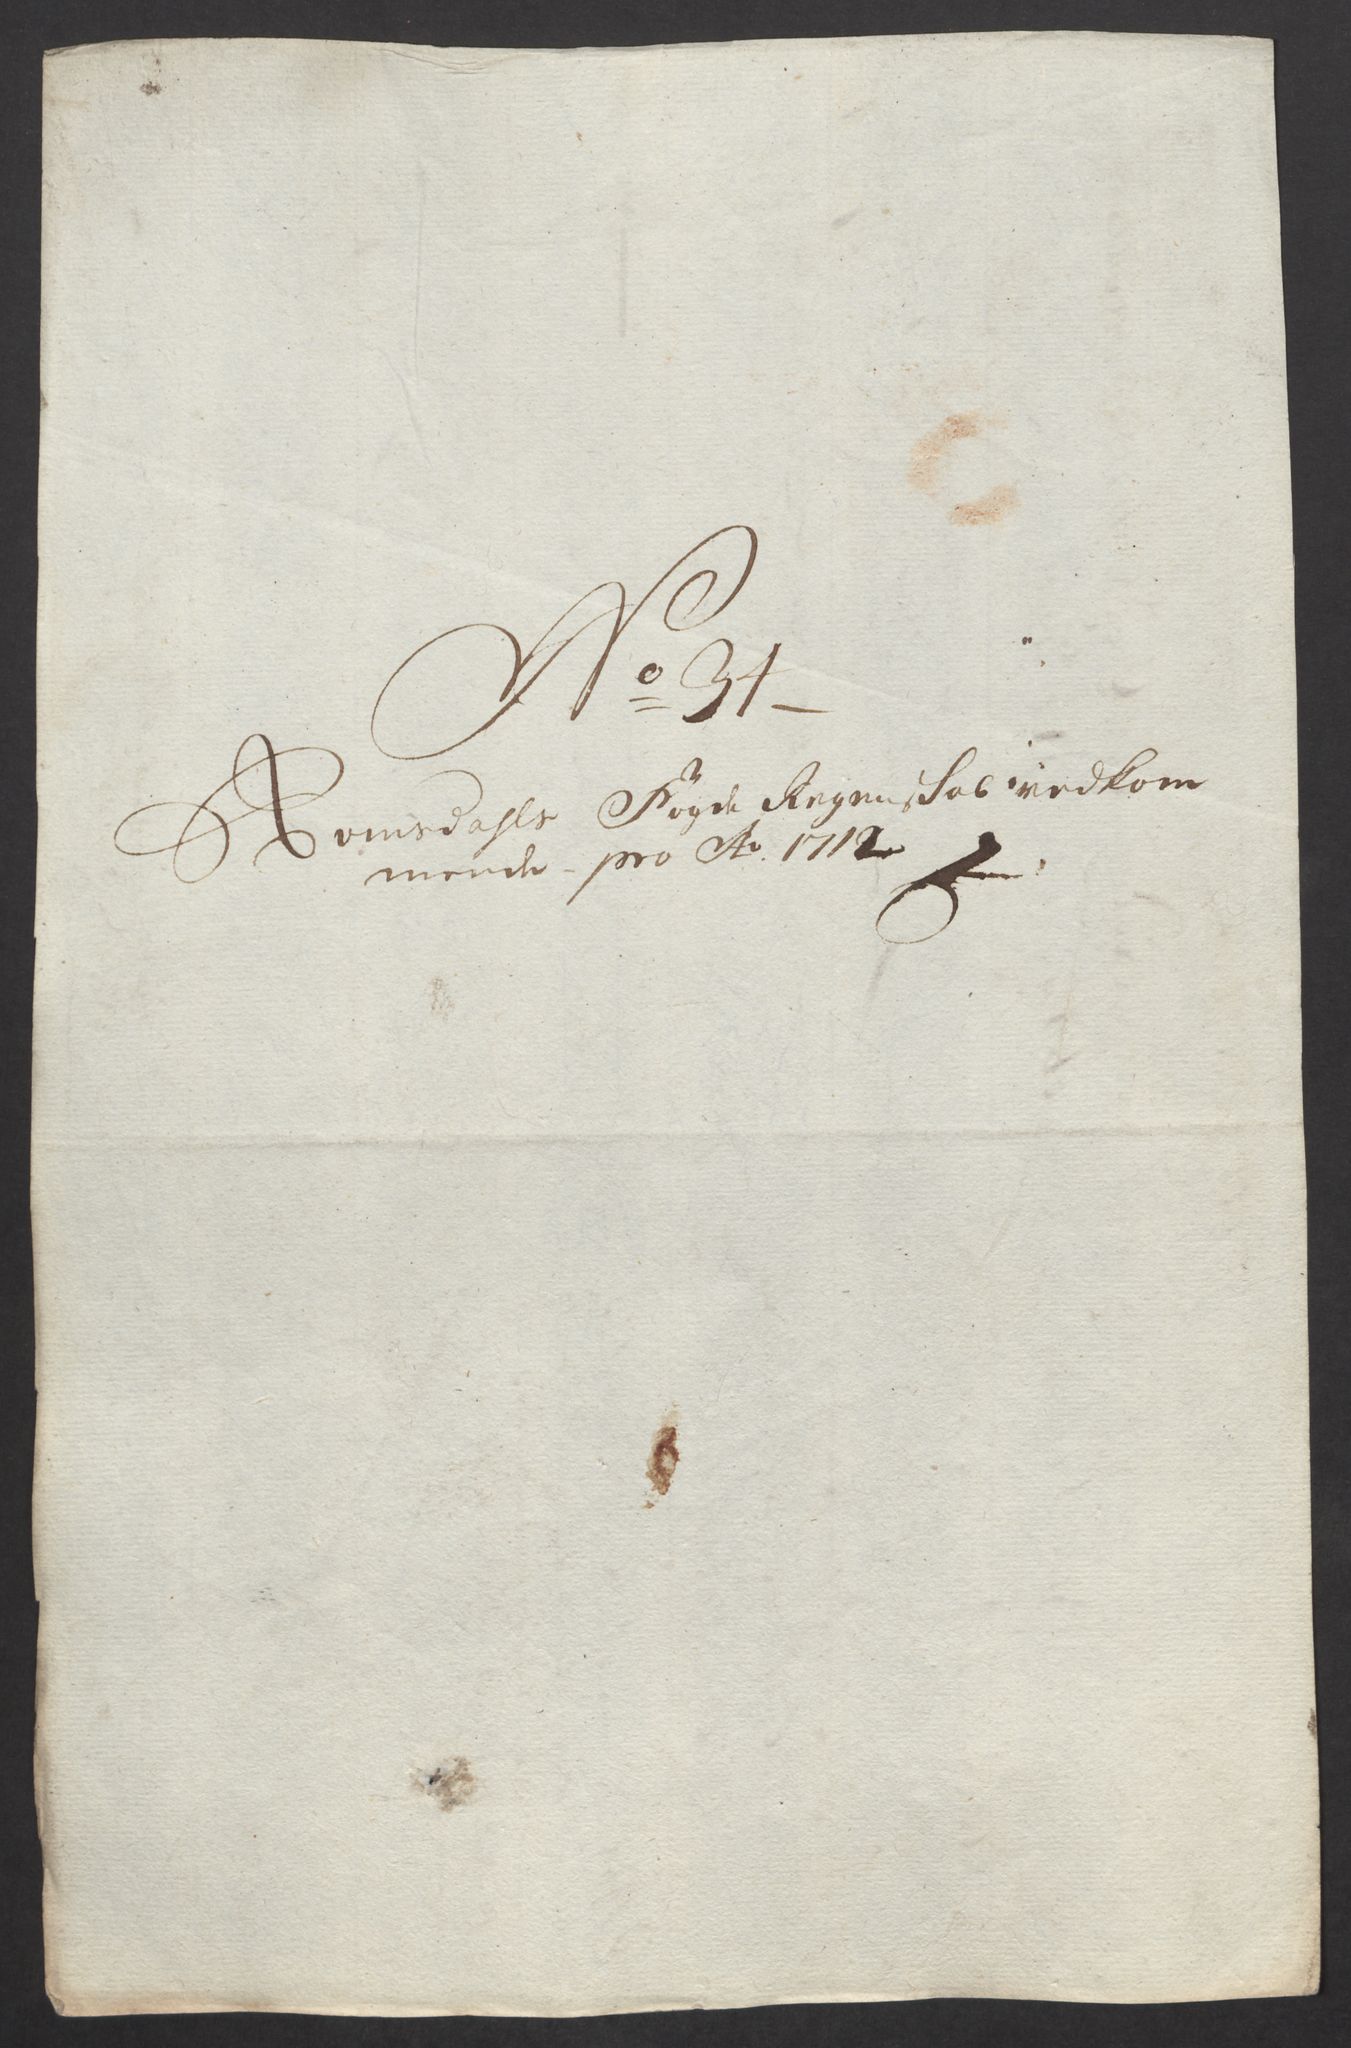 No 34
Romsdahls Fogde Regenskab vedkom
mende pro Ao. 1712